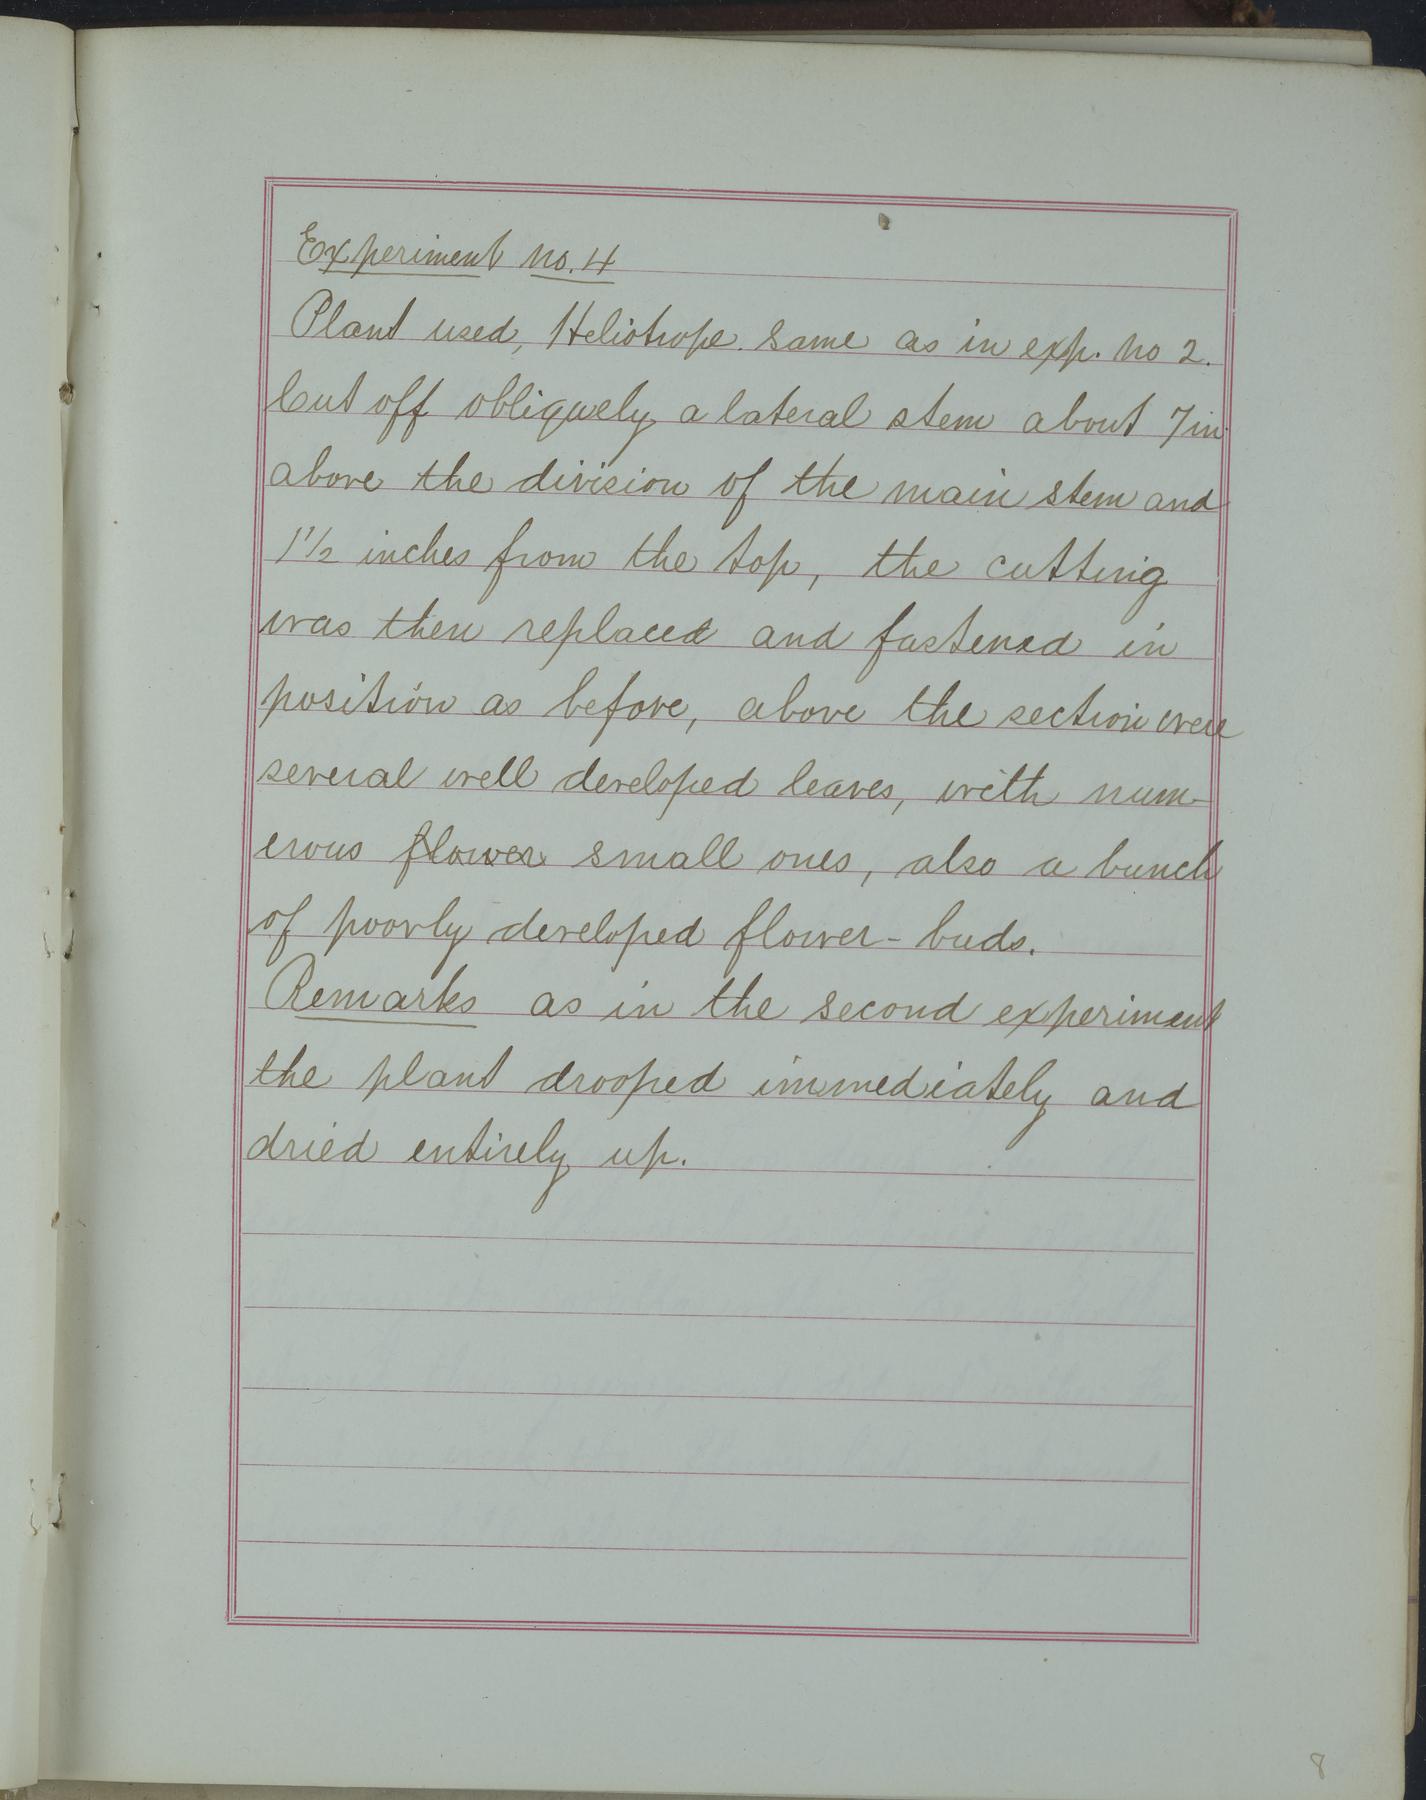 Experiment no. 4
Plant used, Heliotrope. Same as in exp. no 2.
Cut off obliquely a lateral stem about 7 in.
above the division of the main stem and
1 1/2 inches from the top, the cutting
was then replaced and fastened in
position as before, above the section were
several well developed leaves, with num-
erous flower small ones, also a bunch
of poorly developed flower-buds.
Remarks as in the second experiment
the plant drooped immediately and
dried entirely up.
8